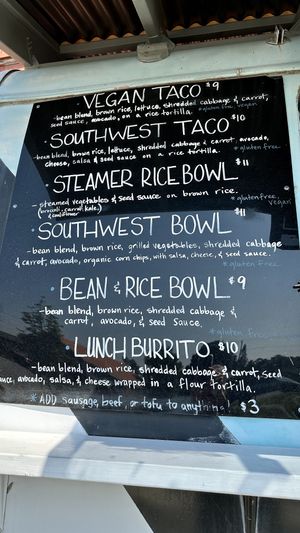 VEGAN TACO $9
-bean blend, brown rice, lettuce, shredded cabbage & carrot,
seed sauce, avocado, on a rice tortilla. *gluten free, vegan
• SOUTHWEST TACO $10
-bean blend, brown rice, lettuce, shredded cabbage & carrot, avocado,
cheese, salsa & seed sauce on a rice tortilla. *gluten free
• STEAMER RICE BOWL $11
- steamed vegetables & seed sauce on brown rice. *gluten free,
(broccoli, carrot, kale, vegan
& cauliflower)
• SOUTHWEST BOWL $11
-bean blend, brown rice, grilled vegetables, shredded cabbage
& carrot, avocado, organic corn chips, with salsa, cheese, & seed sauce.
*gluten free
• BEAN & RICE BOWL $9
-bean blend, brown rice, shredded cabbage &
carrot, avocado, & seed Sauce.
*gluten free
• LUNCH BURRITO $10
-bean blend, brown rice, shredded cabbage & carrot, seed
sauce, avocado, salsa, & cheese wrapped in a flour tortilla.
*ADD sausage, beef, or tofu to anything! $3